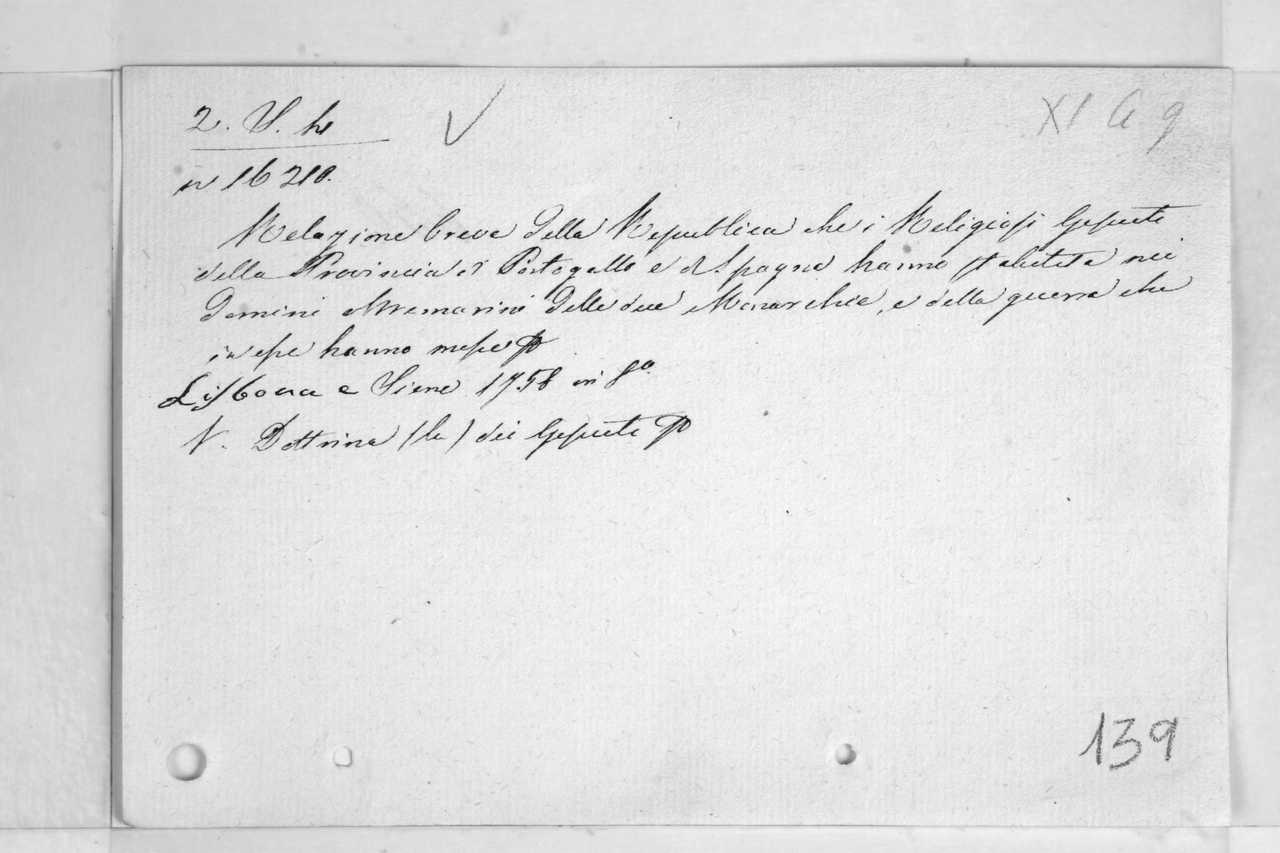 2. S. h
XI G 9
n 16 210.
Relazione breve della Republica che i Religiosi Gesuiti
della Provincia di Portogallo e di Spagna hanno stabilita nei
Domini oltremarini delle due Monarchie, e della guerra che
in esse hanno messe
Lisbona e Siene 1758 in 8º
V. Dottrina (la) dei Gesuiti
139